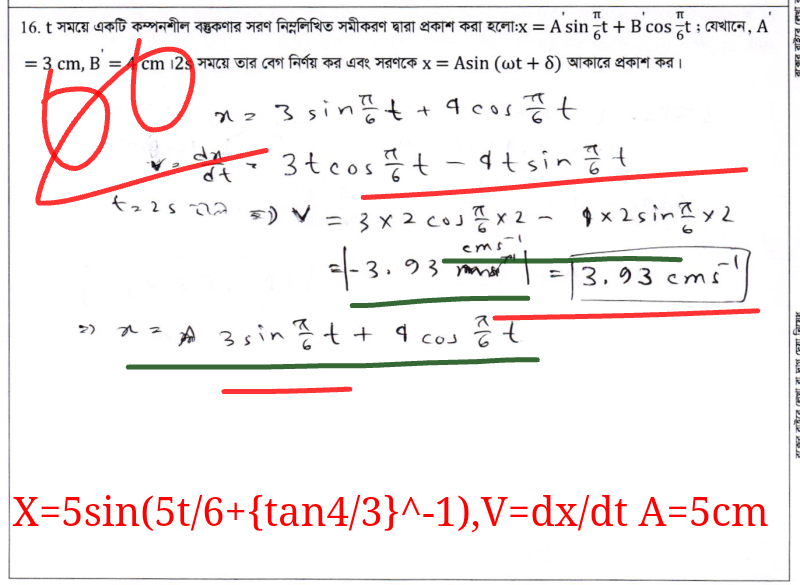 16. t সময়ে একটি কম্পনশীল বস্তুকণার সরণ নিম্নলিখিত সমীকরণ দ্বারা প্রকাশ করা হলো:x = A' sin π/6 t + B' cos π/6 t ; যেখানে, A'
= 3 cm, B' = 4 cm ।2s সময়ে তার বেগ নির্ণয় কর এবং সরণকে x = Asin (ωt + δ) আকারে প্রকাশ কর।
x = 3 sin π/6 t + 4 cos π/6 t
v = dx/dt = 3t cos π/6 t − 4t sin π/6 t
t = 2s হলে ⇒ V = 3 × 2 cos π/6 × 2 − 4 × 2 sin π/6 × 2
= |−3.93 cms⁻¹| = 3.93 cms⁻¹
⇒ x = 3 sin π/6 t + 4 cos π/6 t
X=5sin(5t/6+{tan4/3}^-1),V=dx/dt A=5cm